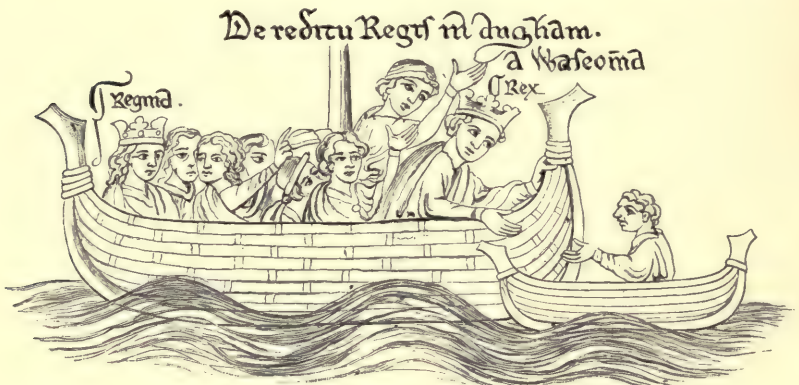 De reditu Regis in Angliam.
a Wasconia
Rex
Regina.